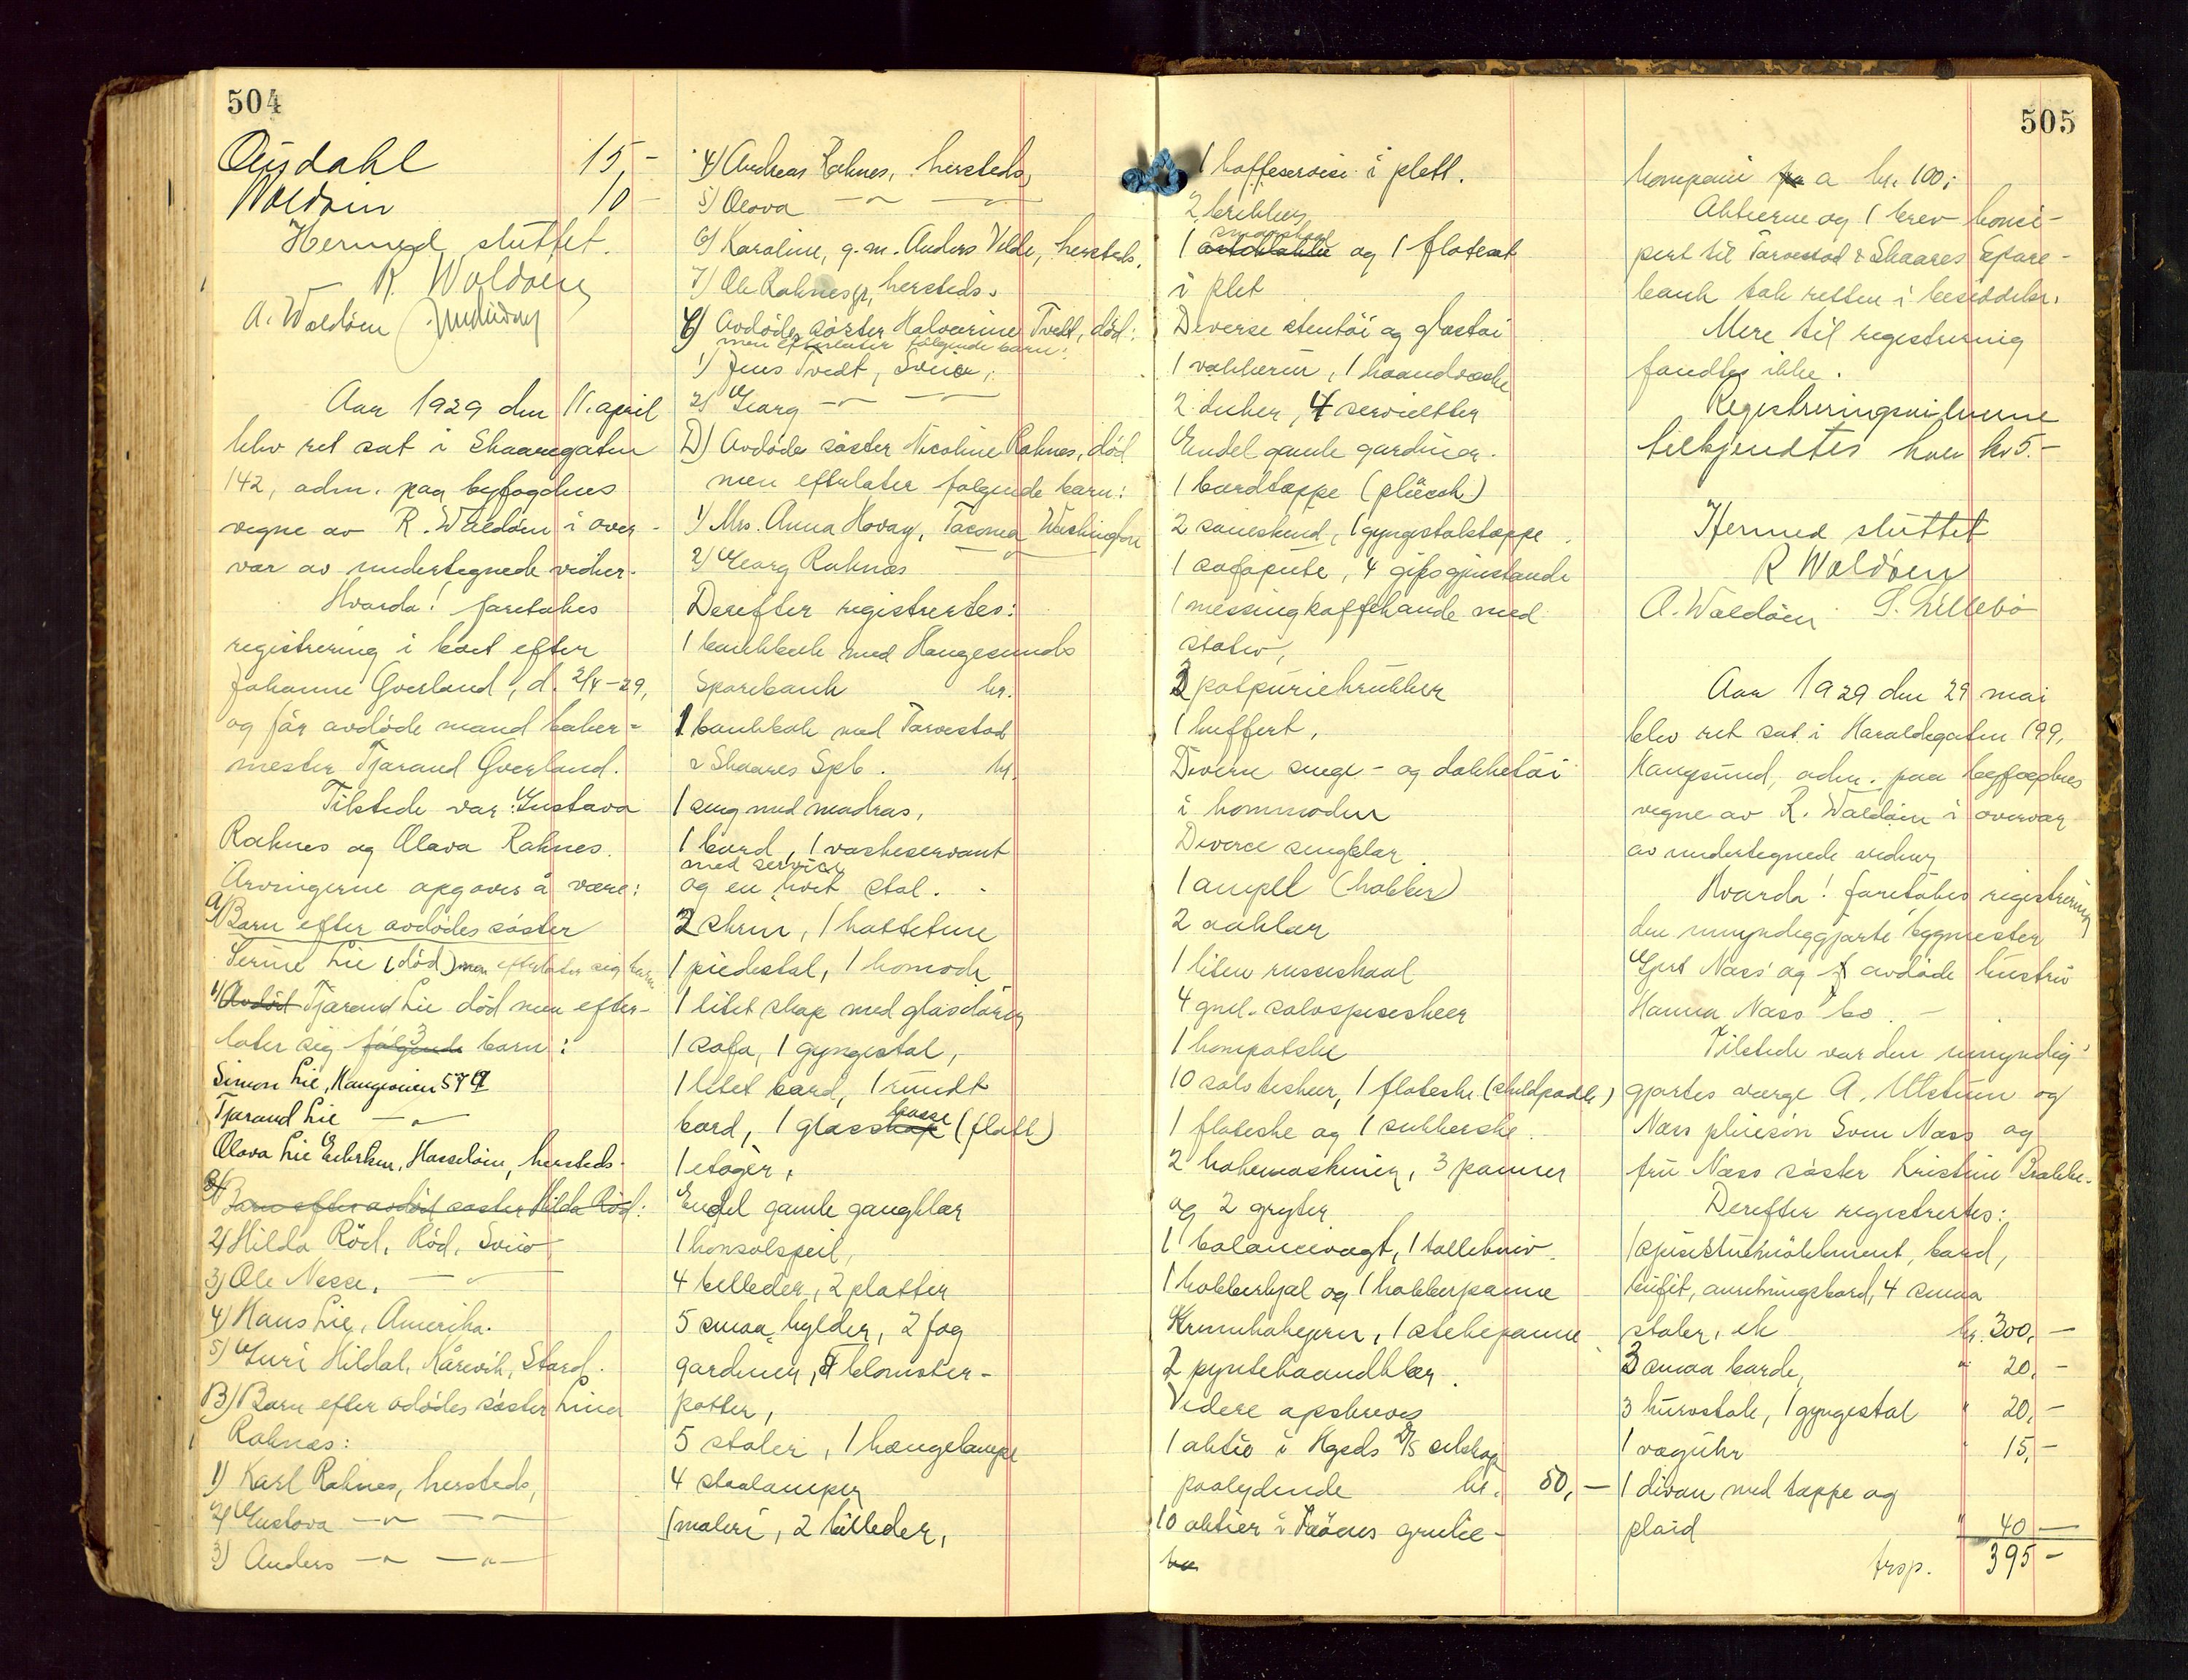 504
Ousdahl 15,-
Waldøin 10-
Hermed sluttet.
R. Waldøen
A. Waldöen
Aar 1929 den 11. april
blev ret sat i Skaaregaten
142, adm. paa byfogdens
vegne av R. Waldöen i over-
vær av undertegnede vidner.
Hvorda! foretokes
registrering i boet efter
Johanne Goerland, d. 2/4-29,
og før avdøde mand baker-
mester Tjerand Goerland.
Tilstede var: Gustava
Røknes og Olava Røknes.
Arvingerne opgaves å være:
A) Barn efter avdødes søster
Serine Lie (død) men efterlater sig barn
1) Avdöd Tjerand Lie död men efter-
later sig følgende 3 barn:
Simon Lie, Haugeveien 579
Tjerand Lie -"-
Olava Lie Eriksen, Hasseløen, hersteds.
B) Barn efter avdöd søster Hilda Röd:
2) Hilda Röd, Röd, Sveio
3) Ole Nesse, -"-
4) Hans Lie, Amerika.
5) Guri Hildal, Kårevik, Stord.
B) Barn efter avdödes søster Lina
Røknes:
1) Karl Røknes, hersteds,
2) Gustava -"- -"-
3) Anders -"- -"-
4) Andreas Røknes, hersteds,
5) Olava -"- -"-
6) Karoline, g.m. Anders Velde, hersteds.
7) Ole Røknes jr, hersteds.
C) Avdödes søster Halvarine Tvedt, död:
men efterlater følgende barn:
1) Jens Tvedt, Sveio,
2) Georg -"- -"-
D) Avdødes søster Nicoline Røknes, död
men efterlater følgende barn:
1) Mrs. Anna Hovay, Tacoma Washington
2) Georg Røknes -"-
Derefter registrertes:
1 bankbok med Haugesunds
Sparebank kr.
1 bankbok med Torvestad
& Skaares Spb. kr.
1 seng med madras,
1 bord, 1 vaskeservant
med servise
og en hvit stol.
2 skrin, 1 hatteture
1 piedestal, 1 komode
1 litet skap med glasdører
1 sofa, 1 gyngestol,
1 litet bord, 1 rundt
bord, 1 glasskap kasse (flatt)
1 etager,
Endel gamle gangklær
1 konsolspeil,
4 billeder, 2 platter
5 smaa hylder, 2 fag
gardiner, 4 blomster-
potter,
5 stoler, 1 hængelampe
4 staalamper
1 maleri, 2 billeder,
505
1 kaffeservise i plett.
2 brikker
smørskaal
1 og 1 flotesat
i plet
Diverse stentöi og glastöi
1 vækkerur, 1 haandvæske
2 duker, 4 servietter
Endel gamle gardiner.
1 bordteppe (plüsch)
2 saueskind, 1 gyngestolsteppe
1 sofapute, 4 gipsgjenstande
1 messingkaffekande med
stativ,
3 potpurriekrukker
1 kuffert,
Diverse senge- og dækketöi
i kommoden
Diverse sengklær
1 ampel (kobber)
2 aaklær
1 liten russeskaal
4 gml. sølvspiseskeer
1 kompotske
10 sølvteskeer, 1 fløteske (skildpadde)
1 flöteske og 1 sukkerske.
2 kokemaskiner, 3 panner
og 2 gryter
1 balancevegt, 1 tallekniv.
1 kobberkjel og 1 kobberpanne
Krumkakejern, 1 stekepanne
2 pyntehaandklær.
Videre opskreves
1 aktie i Hgsds D/S selskap
paalydende kr. 50,-
10 aktier i grube-
kompani a kr. 100,-
Aktierne og 1 brev konci-
pert til Torvestad & Skaares Spare-
bank tok retten i besiddelse.
Mere til registrering
fandtes ikke.
Registreringsvidnene
tilkjendtes hver kr 5.-
Hermed sluttet
R Waldøen
A. Waldöen S. Lillebö
Aar 1929 den 29 mai
blev ret sat i Haraldsgaten 199,
Haugesund, adm. paa byfogdens
vegne av R. Waldöen i overvær
av undertegnede vidner
Hvorda! foretokes registrering
den umyndiggjorte bygmester
Gjert Næss og avdøde hustru
Hanna Næss bo.
Tilstede var den umyndig-
gjortes værge A. Utstein og
Næss pleiesøn Sven Næss og
fru Næss søster Kristine Brekke.
Derefter registrertes:
1 spisestuemöblement, bord,
bufet, anretningsbord, 4 smaa
stoler, ek kr. 300,-
3 smaa borde, " 20,-
3 kurvstole, 1 gyngestol " 20,-
1 væguhr " 15,-
1 divan med teppe og
plaid " 40-
trsp. 395-